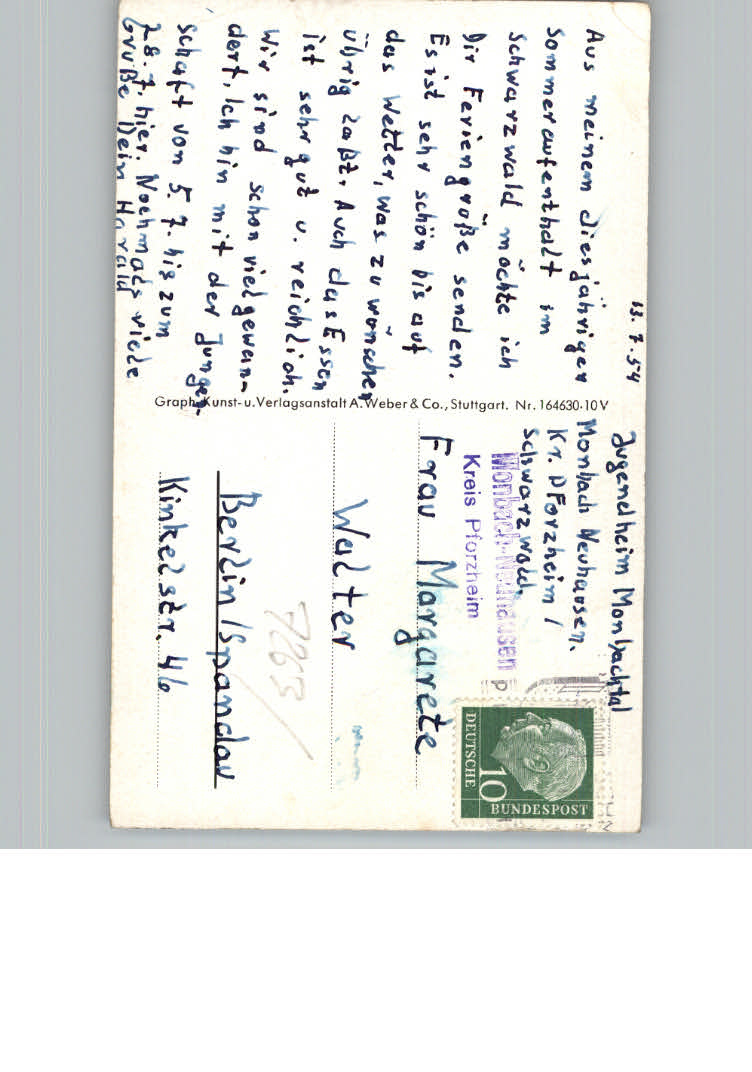 13.7.54
Aus meinem diesjähriger
Sommeraufenthalt im
Schwarzwald möchte ich
Dir Feriengrüße senden.
Es ist sehr schön bis auf
das Wetter, was zu wünschen
übrig läßt. Auch das Essen
ist sehr gut u. reichlich.
Wir sind schon viel gewan-
dert. Ich bin mit der Junger-
schaft von 5.7. bis zum
28.7. hier. Nochmals viele
Grüße Dein Harald
Graph. Kunst- u. Verlagsanstalt A. Weber & Co., Stuttgart. Nr. 164630·10V
Jugendheim Monbachtal
Monbach Neuhausen.
Kr. Pforzheim /
Schwarzwald.
Monbach-Neuhausen
Kreis Pforzheim
DEUTSCHE
10
BUNDESPOST
Frau Margarete
Walter
7263/
Berlin/Spandau
Kinkelstr. 46